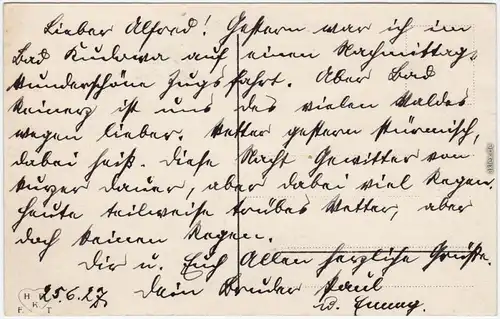 Lieber Alfred! Gestern war ich in
Bad Kudowa auf einen Nachmittag,
wunderschöne Zugsfahrt. Aber Bad
Reinerz ist uns des vielen Waldes
wegen lieber. Wetter gestern stürmisch,
dabei heiß. Diese Nacht Gewitter von
kurzer Dauer, aber dabei viel Regen,
heute teilweise trübes Wetter, aber
doch keinen Regen.
Dir u. Euch Allen herzliche Grüße.
25.6.27 Dein Bruder Paul
u. Emmy.
H K
F. T